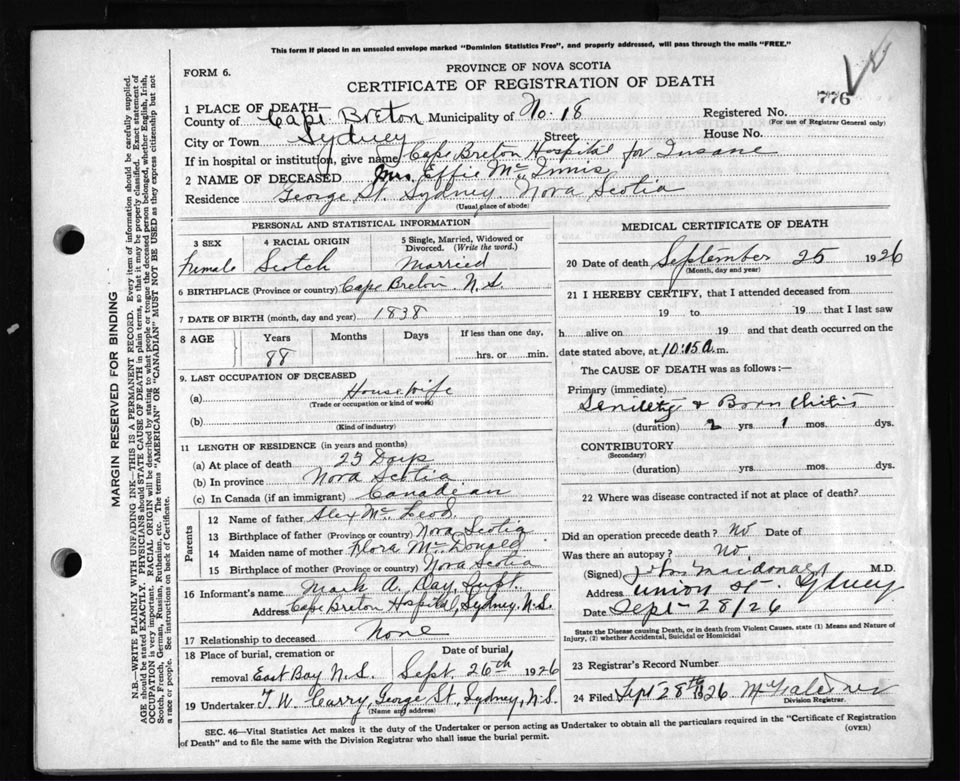 This form if placed in an unsealed envelope marked "Dominion Statistics Free", and properly addressed, will pass through the mails "FREE."
FORM 6.
PROVINCE OF NOVA SCOTIA
CERTIFICATE OF REGISTRATION OF DEATH
776
1 PLACE OF DEATH—
County of Cape Breton Municipality of No. 18 Registered No.
(For use of Registrar General only)
City or Town Sydney Street House No.
If in hospital or institution, give name Cape Breton Hospital for Insane
2 NAME OF DECEASED Mrs. Effie Mc Innis
Residence George St. Sydney, Nova Scotia
(Usual place of abode)
PERSONAL AND STATISTICAL INFORMATION
3 SEX 4 RACIAL ORIGIN 5 Single, Married, Widowed or Divorced. (Write the word.)
Female Scotch Married
6 BIRTHPLACE (Province or country) Cape Breton N.S.
7 DATE OF BIRTH (month, day and year) 1838
8 AGE Years Months Days If less than one day,
88 hrs. or min.
9. LAST OCCUPATION OF DECEASED
(a) Housewife
(Trade or occupation or kind of work)
(b)
(Kind of industry)
11 LENGTH OF RESIDENCE (in years and months)
(a) At place of death 23 Days
(b) In province Nova Scotia
(c) In Canada (if an immigrant) Canadian
Parents
12 Name of father Alex Mc Leod
13 Birthplace of father (Province or country) Nova Scotia
14 Maiden name of mother Flora Mc Donald
15 Birthplace of mother (Province or country) Nova Scotia
16 Informant's name Mark A. Day, Supt.
Address Cape Breton Hospital, Sydney. N.S.
17 Relationship to deceased None
18 Place of burial, cremation or removal Date of burial
East Bay N.S. Sept. 26th 1926
19 Undertaker T. W. Curry, George St., Sydney, N.S.
(Name and address)
MEDICAL CERTIFICATE OF DEATH
20 Date of death September 25 1926
(Month, day and year)
21 I HEREBY CERTIFY, that I attended deceased from
19 to 19 that I last saw
h alive on 19 and that death occurred on the
date stated above, at 10:15 a.m.
The CAUSE OF DEATH was as follows:—
Primary (immediate)
Senility & Bronchitis
(duration) 2 yrs. 1 mos. dys.
CONTRIBUTORY
(Secondary)
(duration) yrs. mos. dys.
22 Where was disease contracted if not at place of death?
Did an operation precede death? No Date of
Was there an autopsy? No
(Signed) Macdonald M.D.
Address Union St. Sydney
Date Sept-28/26
State the Disease causing Death, or in death from Violent Causes, state (1) Means and Nature of Injury, (2) whether Accidental, Suicidal or Homicidal
23 Registrar's Record Number
24 Filed Sept 28th 1926
Division Registrar.
SEC. 46—Vital Statistics Act makes it the duty of the Undertaker or person acting as Undertaker to obtain all the particulars required in the "Certificate of Registration
of Death" and to file the same with the Division Registrar who shall issue the burial permit.
(OVER)
MARGIN RESERVED FOR BINDING
N.B.—WRITE PLAINLY WITH UNFADING INK—THIS IS A PERMANENT RECORD. Every item of information should be carefully supplied.
AGE should be stated EXACTLY. PHYSICIANS should STATE CAUSE OF DEATH in plain terms, so that it may be properly classified. Exact statement of
OCCUPATION is very important. RACIAL ORIGIN will be described by stating to what people or tongue the deceased person belonged, whether English, Irish,
Scotch, French, German, Russian, Ruthenian, etc. The terms "AMERICAN" OR "CANADIAN" MUST NOT BE USED as they express citizenship but not
a race or people. See instructions on back of Certificate.